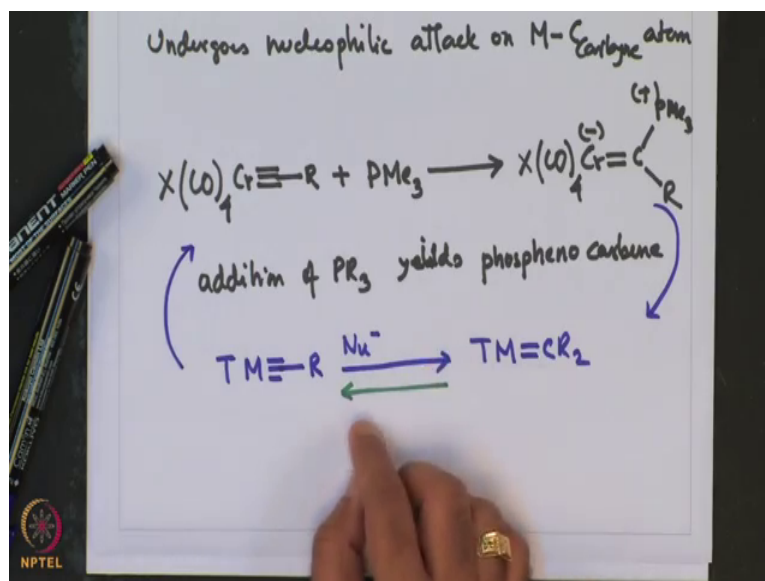 Undergoes nucleophilic attack on M-C carbyne atom
X(CO)4 Cr≡-R + PMe3 → X(CO)4 Cr(-)=C (+)PMe3 R
addition of PR3 yeilds phospheno carbene
TM≡-R Nu- TM=CR2
MARKER PEN
NPTEL